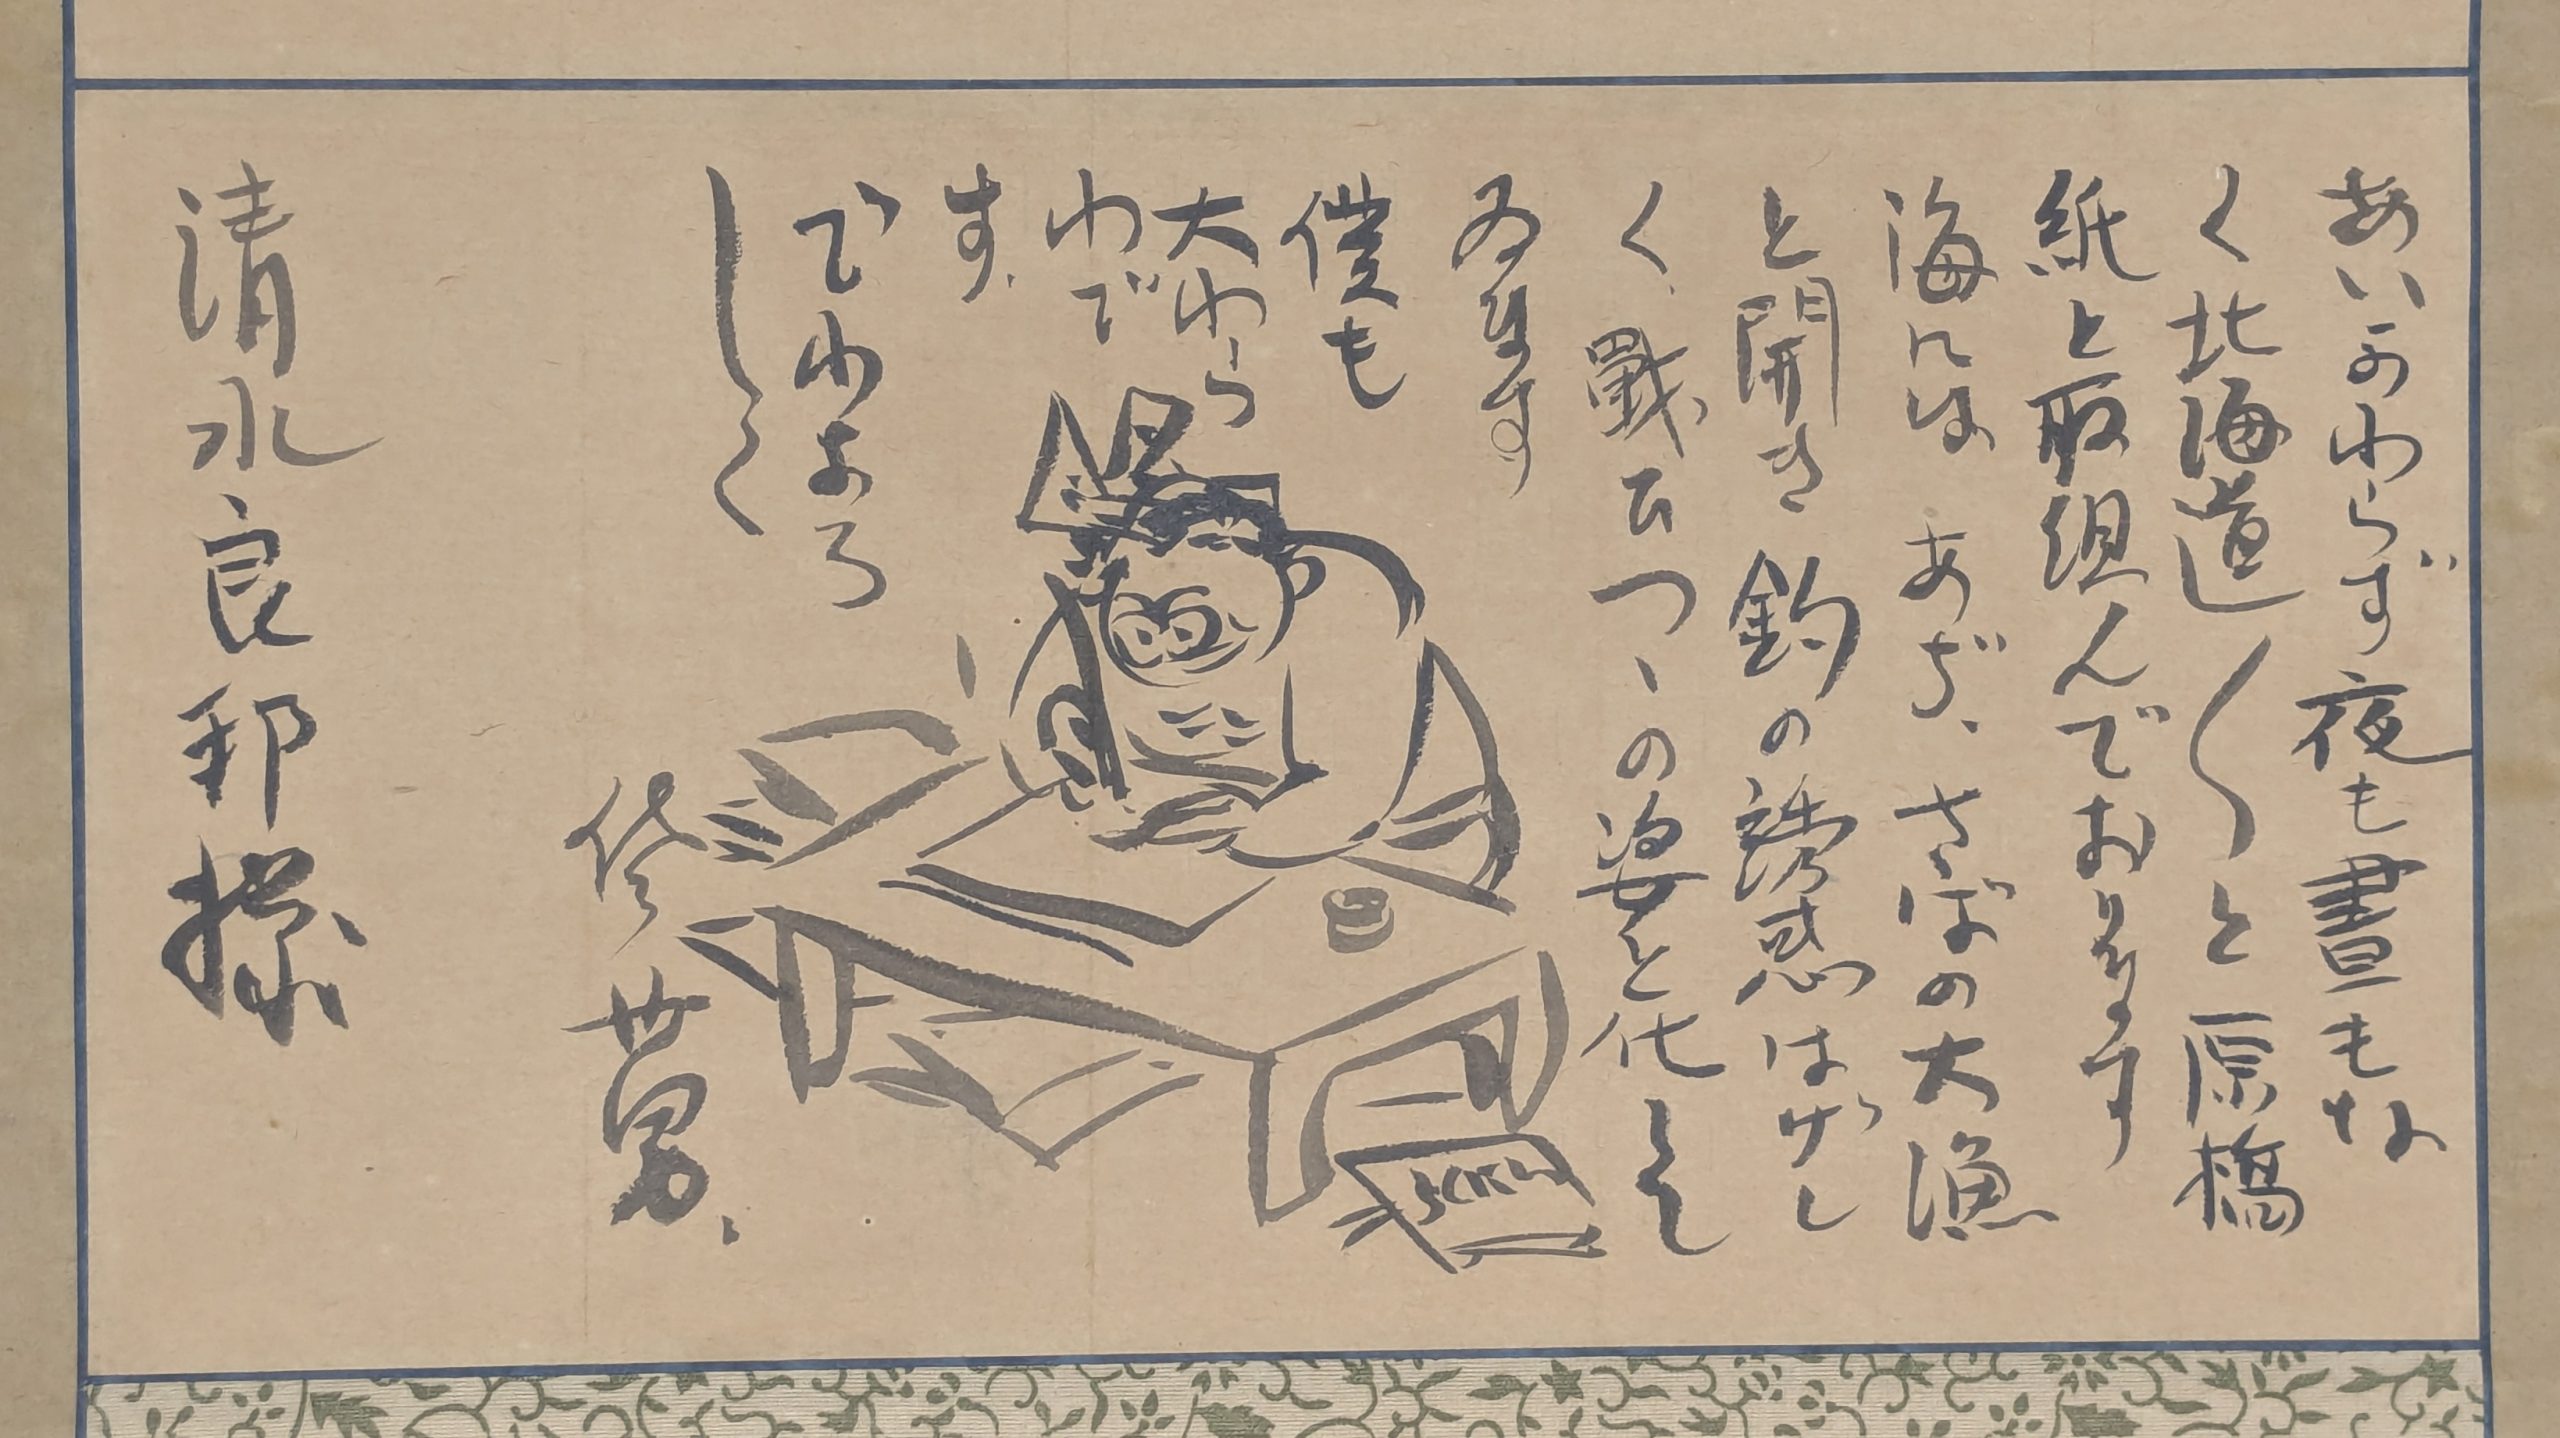 あいかわらず夜も晝もな
く北海道〳〵と原稿
紙と取組んでおります
海にはあぢ、さばの大漁
と聞き釣の誘惑はげし
く、戰ひつゝの姿と化して
ゐます
僕も
大わら
わで
す、
でわよろ
しく
世男、
清水良邦様